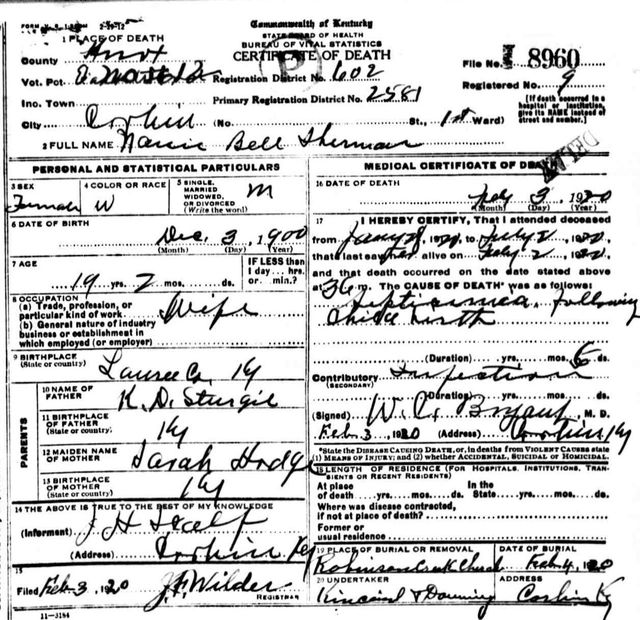 FORM V. S.
Commonwealth of Kentucky
STATE BOARD OF HEALTH
BUREAU OF VITAL STATISTICS
CERTIFICATE OF DEATH
1 PLACE OF DEATH
County Knox
Vot. Pct. Registration District No. 602
Inc. Town Primary Registration District No. 2581
City Corbin (No. St., 1st Ward)
File No. 8960
Registered No. 9
(If death occurred in a hospital or institution, give its NAME instead of street and number.)
2 FULL NAME Nannie Bell Sherman
DELAYED
PERSONAL AND STATISTICAL PARTICULARS
3 SEX Female
4 COLOR OR RACE W
5 SINGLE, MARRIED WIDOWED, OR DIVORCED (Write the word) M
6 DATE OF BIRTH
Dec. 3, 1900
(Month) (Day) (Year)
7 AGE
19 yrs. 2 mos. ds.
IF LESS than 1 day... hrs. or min.?
8 OCCUPATION
(a) Trade, profession, or particular kind of work Wife
(b) General nature of industry business or establishment in which employed (or employer)
9 BIRTHPLACE
(State or country) Laurel Co. Ky
PARENTS
10 NAME OF FATHER K. D. Sturgil
11 BIRTHPLACE OF FATHER
(State or country) Ky
12 MAIDEN NAME OF MOTHER Sarah Hodge
13 BIRTHPLACE OF MOTHER
(State or country) Ky
14 THE ABOVE IS TRUE TO THE BEST OF MY KNOWLEDGE
(Informant) J H Scalf
(Address) Corbin Ky
15
Filed Feb 3, 1920 J. F. Wilder
REGISTRAR
11-3184
MEDICAL CERTIFICATE OF DEATH
16 DATE OF DEATH
3 1920
(Month) (Day) (Year)
17 I HEREBY CERTIFY, That I attended deceased
from 1920, to 2 1920,
that I last saw her alive on 2 1920,
and that death occurred on the date stated above
at m. The CAUSE OF DEATH* was as follows:
Septicemea following
Child birth
(Duration) yrs. mos. 6 ds.
Contributory Infection
(SECONDARY)
(Duration) yrs. mos. ds.
(Signed) W. C. Bryant, M. D.
Feb. 3, 1920 (Address) Corbin Ky
*State the DISEASE CAUSING DEATH, or, in deaths from VIOLENT CAUSES state (1) MEANS OF INJURY; and (2) whether ACCIDENTAL, SUICIDAL or HOMICIDAL.
18 LENGTH OF RESIDENCE (FOR HOSPITALS, INSTITUTIONS, TRANSIENTS OR RECENT RESIDENTS)
At place of death yrs. mos. ds. In the State yrs. mos. ds.
Where was disease contracted, if not at place of death?
Former or usual residence
19 PLACE OF BURIAL OR REMOVAL
Robinson Creek Church
DATE OF BURIAL
Feb 4, 1920
20 UNDERTAKER
Kincaid & Downing
ADDRESS
Corbin Ky